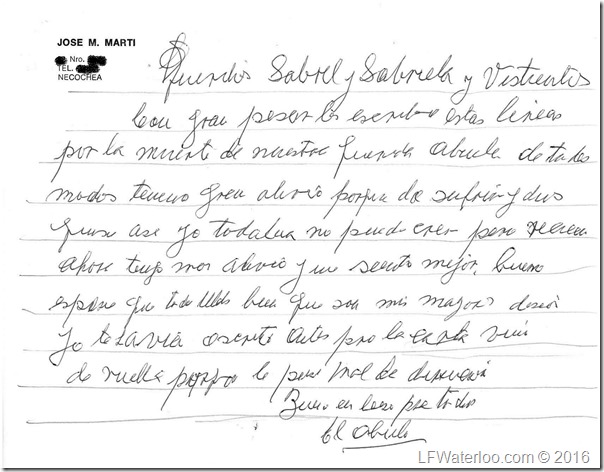 JOSE M. MARTI
Nro.
TEL.
NECOCHEA
Queridos Gabriel y Gabriela y
Con gran pesar les escribo estas lineas
por la muerte de nuestra querida abuela de todos
modos tenemo gran alivio porque de sufria y dios
quiso asi yo todavia no puedo creer pero
ahora tengo mas alivio y me siento mejor, bueno
espero que todo bien que son mis mayores deseos
yo les avia escrito antes pero la carta vino
de vuelta porque le puse mal la direccion
Bueno un beso para todos
El abuelo
LFWaterloo.com © 2016